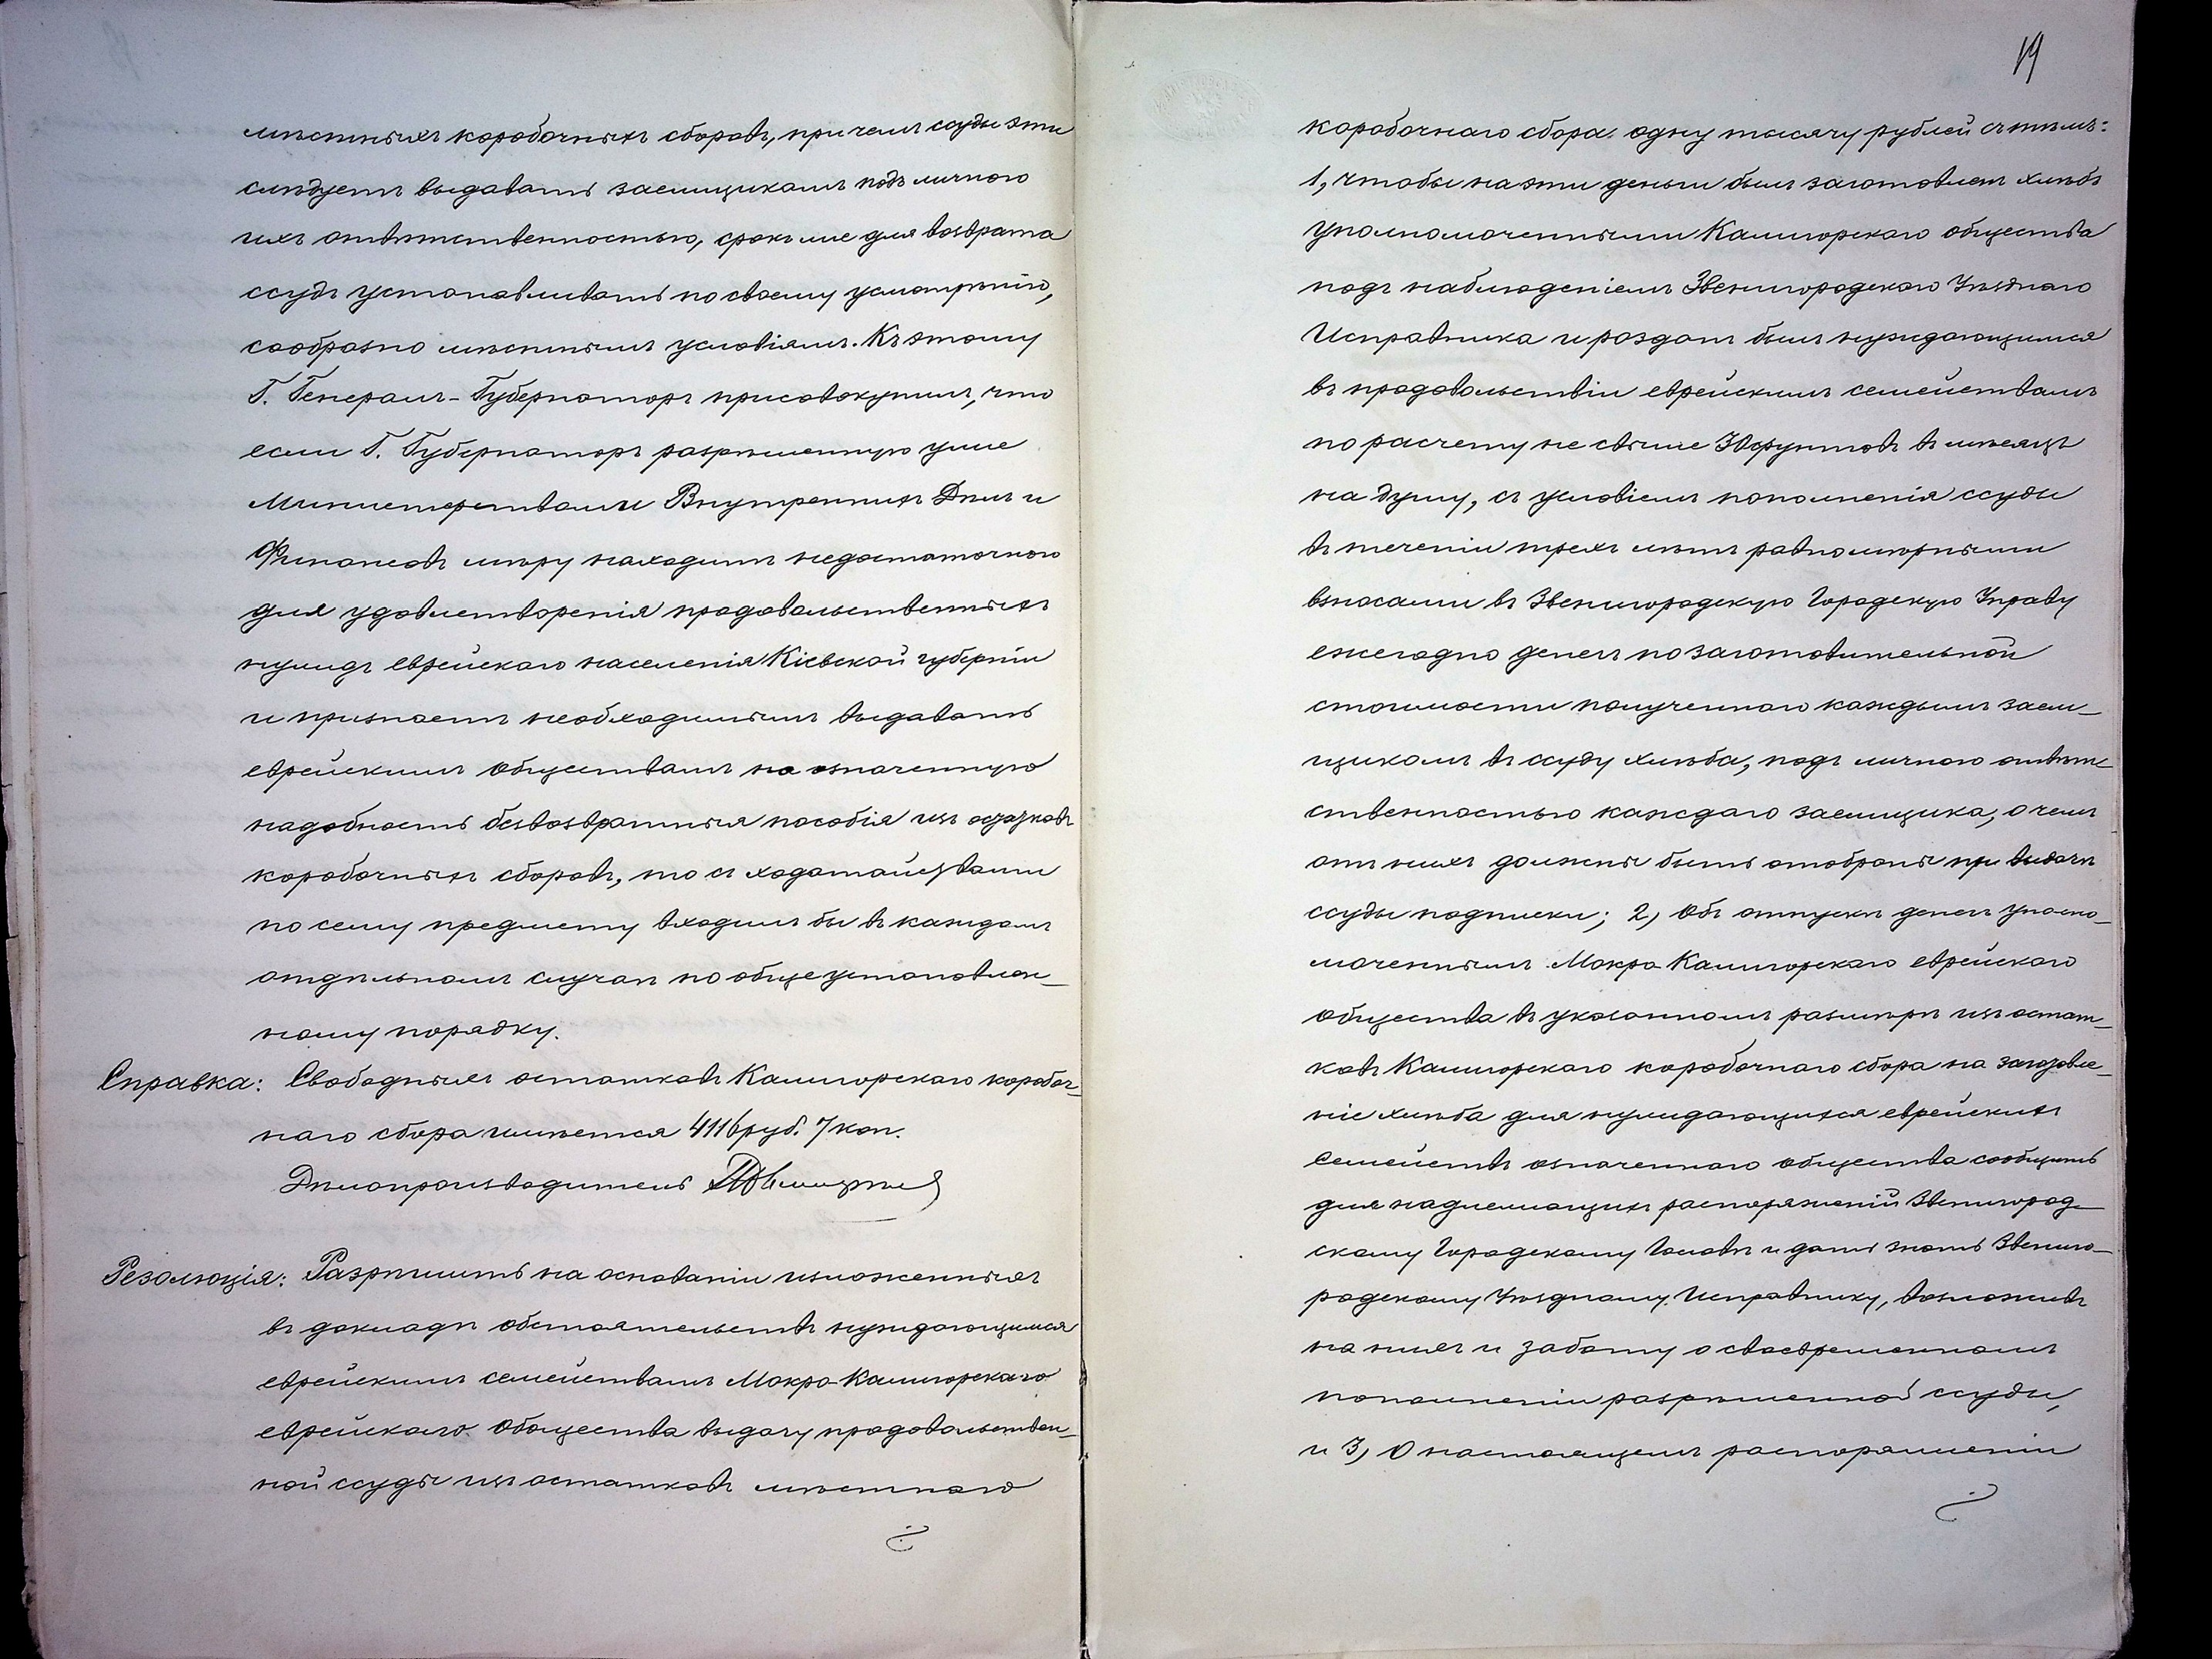 мѣстныхъ коробочныхъ сборовъ, при чемъ ссуды эти
слѣдуетъ выдавать заемщикамъ подъ личною
ихъ отвѣтственностью, срокъ же для возврата
ссудъ устанавливать по своему усмотрѣнію,
сообразно мѣстнымъ условіямъ. Къ этому
Г. Генералъ-Губернаторъ присовокупилъ, что
если Г. Губернаторъ разрѣшенную уже
Министерствами Внутреннихъ Дѣлъ и
Финансовъ мѣру находитъ недостаточною
для удовлетворенія продовольственныхъ
нуждъ еврейскаго населенія Кіевской губерніи
и признаетъ необходимымъ выдавать
еврейскимъ обществамъ на означенную
надобность безвозвратныя пособія изъ остатковъ
коробочныхъ сборовъ, то съ ходатайствами
по сему предмету входилъ бы въ каждомъ
отдѣльномъ случаѣ по общеустановлен-
ному порядку.
Справка: Свободныхъ остатковъ Калигорскаго короboч-
наго сбора имѣется 4116 руб. 7 коп.
Дѣлопроизводитель
Резолюція: Разрѣшить на основаніи изложенныхъ
въ докладѣ обстоятельствъ нуждающимся
еврейскимъ семействамъ Мокро-Калигорскаго
еврейскаго общества выдачу продовольствен-
ной ссуды изъ остатковъ мѣстнаго
19
коробочнаго сбора одну тысячу рублей съ тѣмъ:
1, чтобы на эти деньги былъ заготовленъ хлѣбъ
уполномоченными Калигорскаго общества
подъ наблюденіемъ Звенигородскаго Уѣзднаго
Исправника и розданъ былъ нуждающимся
въ продовольствіи еврейскимъ семействамъ
по расчету не свыше 30 фунтовъ въ мѣсяцъ
на душу, съ условіемъ пополненія ссуды
въ теченіи трехъ лѣтъ равномѣрными
взносами въ Звенигородскую Городскую Управу
ежегодно денегъ по заготовительной
стоимости полученнаго каждымъ заем-
щикомъ въ ссуду хлѣба, подъ личною отвѣт-
ственностью каждаго заемщика, о чемъ
отъ нихъ должны быть отобраны при выдачѣ
ссуды подписки; 2, Объ отпускѣ денегъ уполно-
моченнымъ Мокро-Калигорскаго еврейскаго
общества въ указанномъ размѣрѣ изъ остат-
ковъ Калигорскаго коробочнаго сбора на заготовле-
ніе хлѣба для нуждающихся еврейскихъ
семействъ означеннаго общества сообщить
для надлежащихъ распоряженій Звенигород-
скому Городскому Головѣ и дать знать Звениго-
родскому Уѣздному Исправнику, возложивъ
на нихъ и заботу о своевременномъ
пополненіи разрѣшенной ссуды,
и 3, О настоящемъ распоряженіи